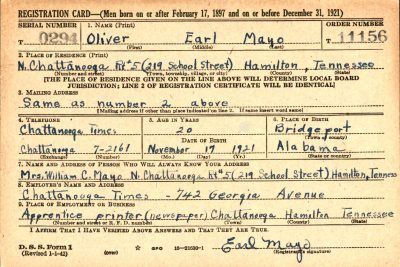 REGISTRATION CARD—(Men born on or after February 17, 1897 and on or before December 31, 1921)
SERIAL NUMBER 1. NAME (Print) ORDER NUMBER
T 0294 Oliver Earl Mayo T 11156
(First) (Middle) (Last)
2. PLACE OF RESIDENCE (Print)
N. Chattanooga Rt #5 (219 School Street) Hamilton, Tennessee
(Number and street) (Town, township, village, or city) (County) (State)
[THE PLACE OF RESIDENCE GIVEN ON THE LINE ABOVE WILL DETERMINE LOCAL BOARD
JURISDICTION; LINE 2 OF REGISTRATION CERTIFICATE WILL BE IDENTICAL]
3. MAILING ADDRESS
Same as number 2 above
(Mailing address if other than place indicated on line 2. If same insert word same)
4. TELEPHONE 5. AGE IN YEARS 6. PLACE OF BIRTH
Chattanooga Times 20 Bridgeport
DATE OF BIRTH (Town or county)
Chattanooga 7-2161 November 17 1921 Alabama
(Exchange) (Number) (Mo.) (Day) (Yr.) (State or country)
7. NAME AND ADDRESS OF PERSON WHO WILL ALWAYS KNOW YOUR ADDRESS
Mrs. William C. Mayo N. Chattanooga Rt #5 (219 School Street) Hamilton, Tenness
8. EMPLOYER'S NAME AND ADDRESS
Chattanooga Times - 742 Georgia Avenue
9. PLACE OF EMPLOYMENT OR BUSINESS
Apprentice printer (newspaper) Chattanooga Hamilton Tennessee
(Number and street or R. F. D. number) (Town) (County) (State)
I AFFIRM THAT I HAVE VERIFIED ABOVE ANSWERS AND THAT THEY ARE TRUE.
D. S. S. Form 1 GPO 16—21630-1 Earl Mayo
(Revised 1-1-42) (over) (Registrant's signature)